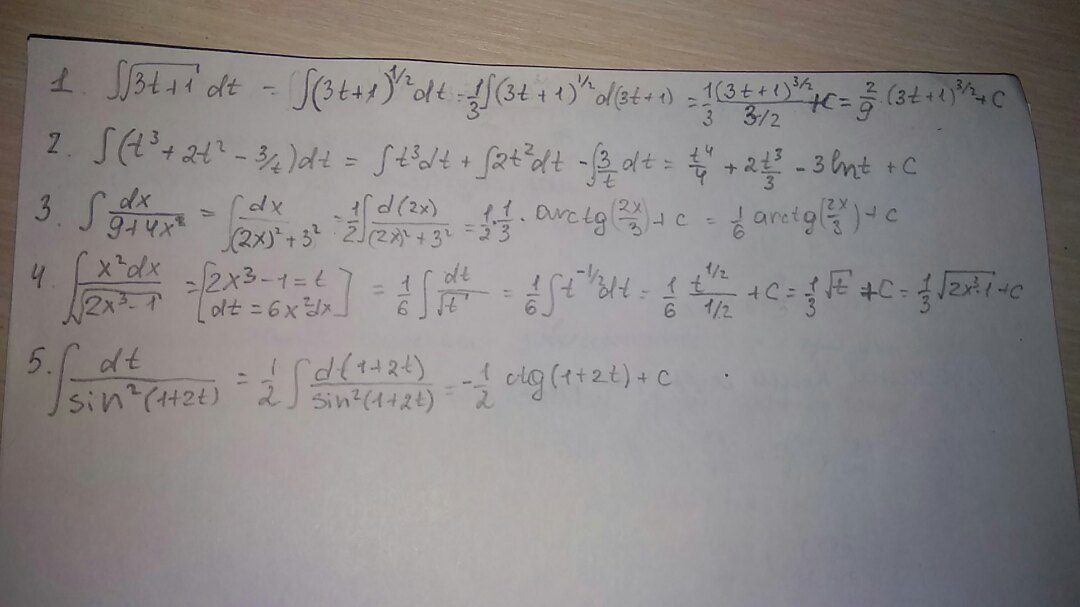 1. ∫√(3t+1) dt = ∫(3t+1)^1/2 dt = 1/3 ∫(3t+1)^1/2 d(3t+1) = 1/3 (3t+1)^3/2 / 3/2 + C = 2/9 · (3t+1)^3/2 + C
2. ∫(t³ + 2t² - 3/t)dt = ∫t³dt + ∫2t²dt - ∫3/t dt = t⁴/4 + 2t³/3 - 3lnt + C
3. ∫dx/(9+4x²) = ∫dx/((2x)²+3²) = 1/2 ∫d(2x)/((2x)²+3²) = 1/2 · 1/3 · arctg(2x/3) + c = 1/6 arctg(2x/3) + c
4. ∫x²dx/√(2x³-1) = [2x³-1=t dt=6x²dx] = 1/6 ∫dt/√t = 1/6 ∫t^-1/2 dt = 1/6 t^1/2 / 1/2 + C = 1/3 √t + C = 1/3 √(2x³-1) + C
5. ∫dt/sin²(1+2t) = 1/2 ∫d(1+2t)/sin²(1+2t) = -1/2 ctg(1+2t) + C